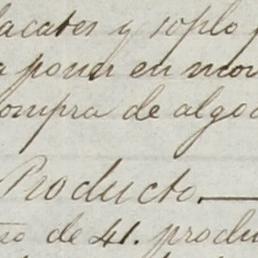 lacates y soplo
a poner en mov
compra de algod
Producto.
año de 41. produ